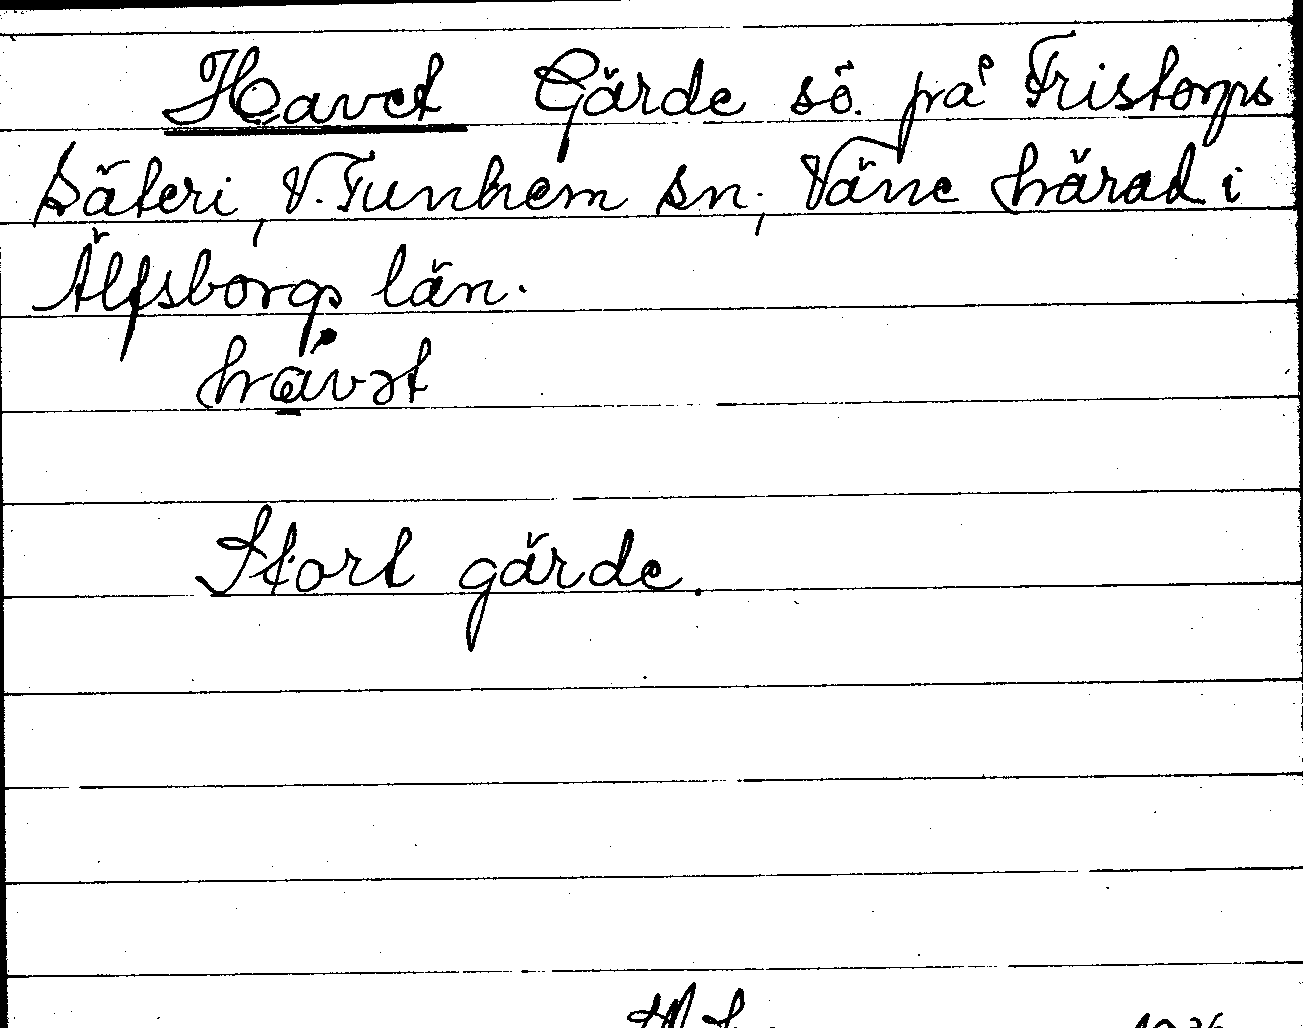 Havet Gärde sö. på Fristorps
Säteri, V. Tunhem sn, Väne härad i
Älfsborgs län.
hávət
Stort gärde.